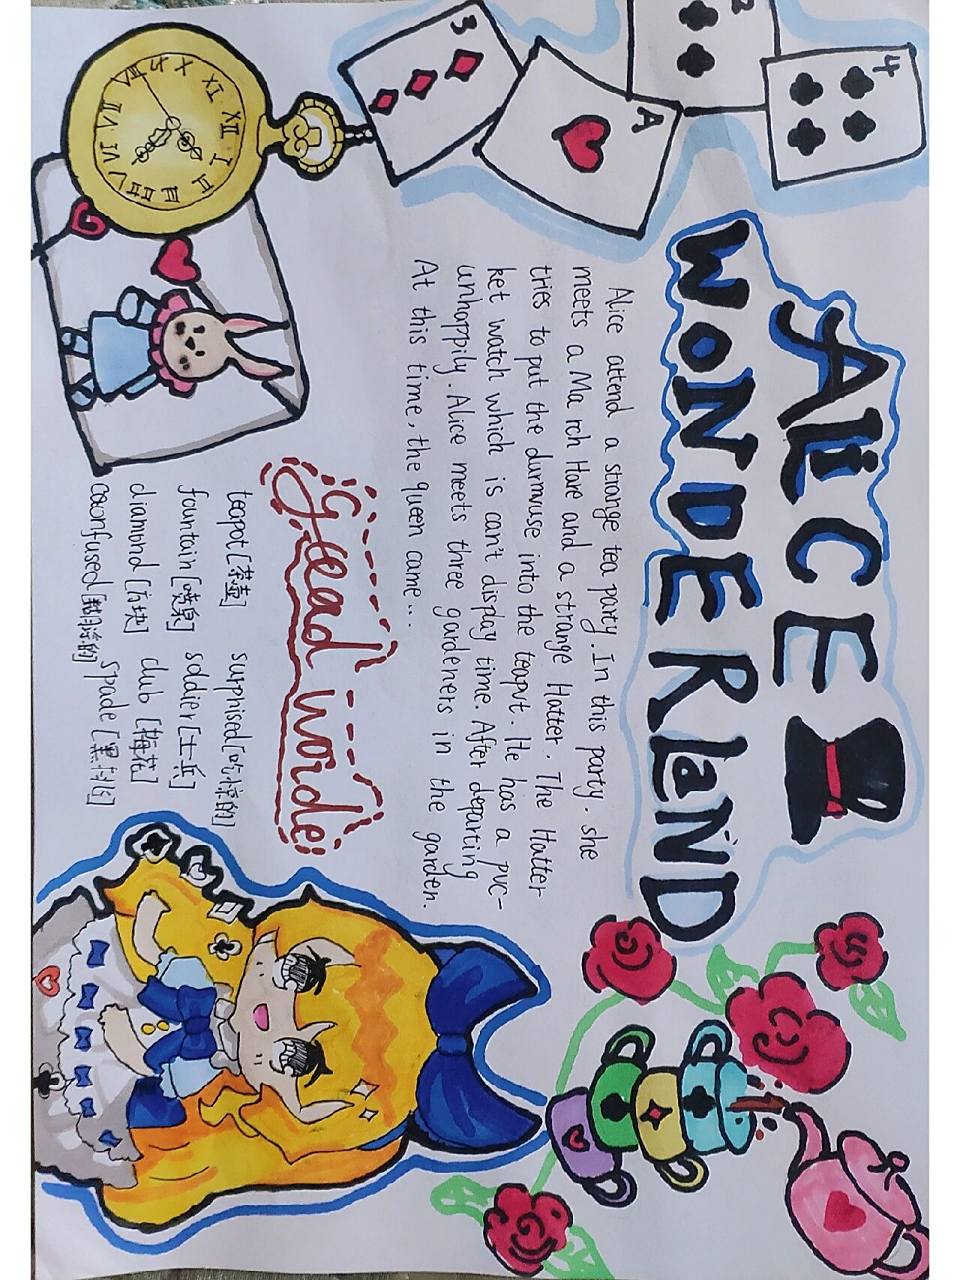 ALiCE
WONDERLaND
Alice attend a strange tea party. In this party. she
meets a Ma rch Hare and a strange Hatter. The Hatter
tries to put the durmuse into the teapvt. He has a pvc-
ket watch which is can't display time. After departing
unhappily. Alice meets three gardeners in the garden.
At this time, the queen came...
Gead words
teapot [茶壶] surphised [吃惊的]
fountain [喷泉] soddier [士兵]
diamond [方块] club [梅花]
coonfused [糊涂的] spade [黑桃]
3
A
2
4
XII
I
II
III
IIII
V
VI
VII
VIII
X
XI